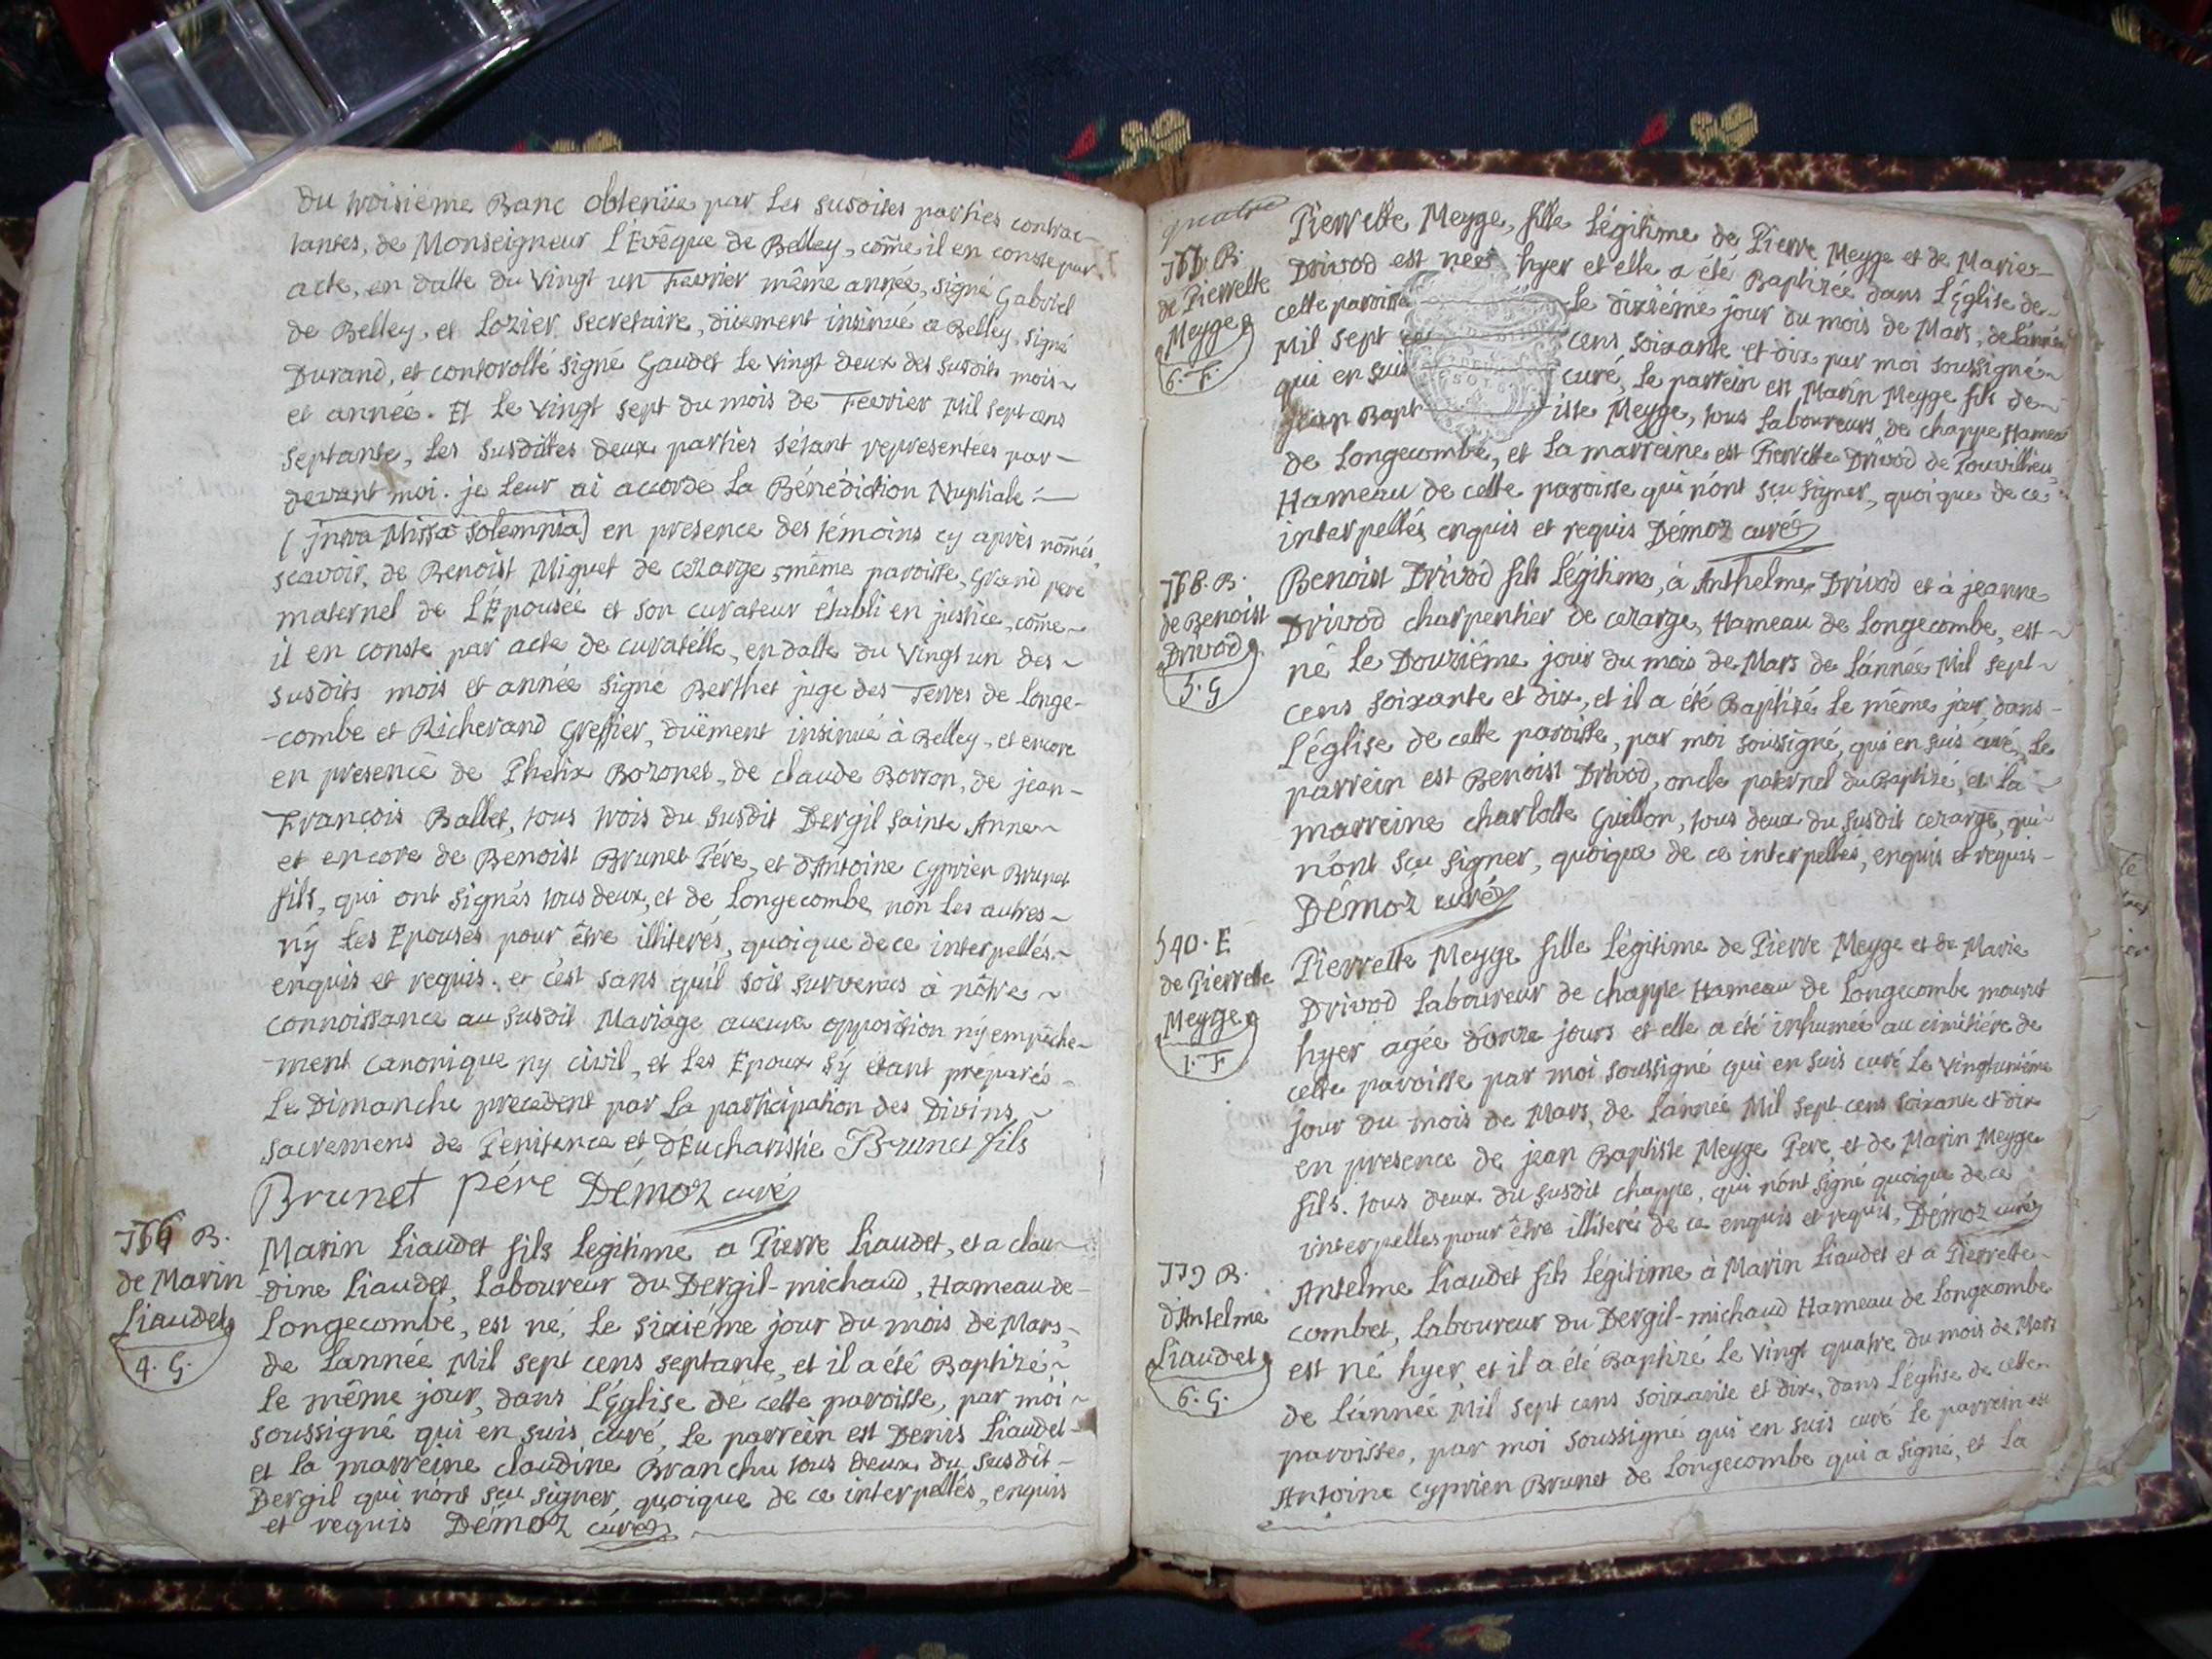 du troisième Banc obtenüe par les susdites parties contrac-
tantes, de Monseigneur l'Evêque de Belley, come il en conste par
acte, en datte du vingt un Feevrier même année, signé Gabriel
de Belley, et Lozier secretaire, düement insinué a Belley, signé
Durand, et controollé signé Gaudet le vingt deux des susdits mois
et année. Et le vingt sept du mois de Feevrier Mil sept cens
septante, les susdittes deux parties s'étant representées par-
devant moi. je leur ai accordé la Bénédiction Nuptiale
(intra Missæ solemnia) en presence des témoins cy après només
scavoir, de Benoist Miguet de cezarge même paroisse, Grand pere
maternel de L'Epousée et son curateur établi en justice, come
il en conste par acte de curatelle, en datte du vingt un des
susdits mois et année signé Berthet juge des Terres de Longe-
-combe et Richerand Greffier, düement insinué à Belley, et encore
en presence de Phelix Bozonet, de claude Borron, de jean-
François Ballet, tous trois du susdit Dergil sainte Anne
et encore de Benoist Brunet Pére, et d'Antoine Cyprien Brunet
fils, qui ont signés tous deux, et de Longecombe non les autres
ny les Epousés pour être illiterés, quoique de ce interpellés
enquis et requis. et c'est sans qu'il soit survenus à nôtre
connoissance au susdit Mariage aucune opposition ny empêche-
-ment canonique ny civil, et les Epoux s'y étant préparés
le Dimanche precedent par la participation des Divins
sacremens de Penitence et d'Eucharistie Brunet fils
Brunet pére Démoz curé
B.
de Marin
Liaudet
4. G.
Marin Liaudet fils legitime a Pierre Liaudet, et a clau-
-dine Liaudet, Laboureur du Dergil-michaud, Hameau de-
Longecombe, est né, le sixiéme jour du mois de Mars
de l'année Mil sept cens septante, et il a été Baptizé
le même jour, dans L'Eglise de cette paroisse, par moi
soussigné qui en suis curé, le parrein est Denis Liaudet
et la marreine claudine Branche tous deux du susdit
Dergil qui n'ont sçu signer, quoique de ce interpellés, enquis
et requis Démoz curé
quatre
B.
de Pierrette
Meyge
6. F.
Pierrette Meyge, fille légitime de Pierre Meyge et de Marie
Drivod est neé hyer et elle a été Baptizée dans L'église de
cette paroisse le dixiéme jour du mois de Mars, de l'année
Mil sept cens soixante et dix par moi soussigné
qui en suis curé, le parrein est Marin Meyge fils de
jean Bapt-iste Meyge, tous Laboureurs de chappe Hameau
de Longecombe, et la marreine est Pierrette Drivod de Pouvillieu
Hameau de cette paroisse qui n'ont sçu signer, quoique de ce
interpellés enquis et requis Démoz curé
B.
de Benoist
Drivod
5. G
Benoist Drivod fils légitime, à Anthelme Drivod et à jeanne
Drivod charpentier de cezarge, Hameau de Longecombe, est
né le Douziéme jour du mois de Mars de l'année Mil sept
cens soixante et dix, et il a été Baptizé le même jour, dans
l'église de cette paroisse, par moi soussigné, qui en suis curé, le
parrein est Benoist Drivod, oncle paternel du Baptizé, et la
marreine charlotte Guillon, tous deux du susdit cezarge, qui
n'ont sçu signer, quoique de ce interpellés, enquis et requis
Démoz curé
540. E
de Pierrette
Meyge
1. F
Pierrette Meyge fille légitime de Pierre Meyge et de Marie
Drivod Laboureur de chappe Hameau de Longecombe mourut
hyer agée d'onze jours et elle a été inhumée au cimitiére de
cette paroisse par moi soussigné qui en suis curé le vingtuniéme
jour du mois de Mars, de l'année Mil sept cens soixante et dix
en presence de jean Baptiste Meyge Pere, et de Marin Meyge
fils. tous deux du susdit chappe, qui n'ont signé quoique de ce
interpellés pour être illiterés de ce enquis et requis, Démoz curé
B.
d'Antelme
Liaudet
6. G.
Antelme Liaudet fils légitime à Marin Liaudet et a Pierrette
combet, Laboureur du Dergil-michaud Hameau de Longecombe
est né hyer, et il a été Baptizé le vingt quatre du mois de Mars
de l'année Mil sept cens soixante et dix, dans l'église de cette
paroisse, par moi soussigné qui en suis curé le parrein est
Antoine cyprien Brunet de Longecombe qui a signé, et la